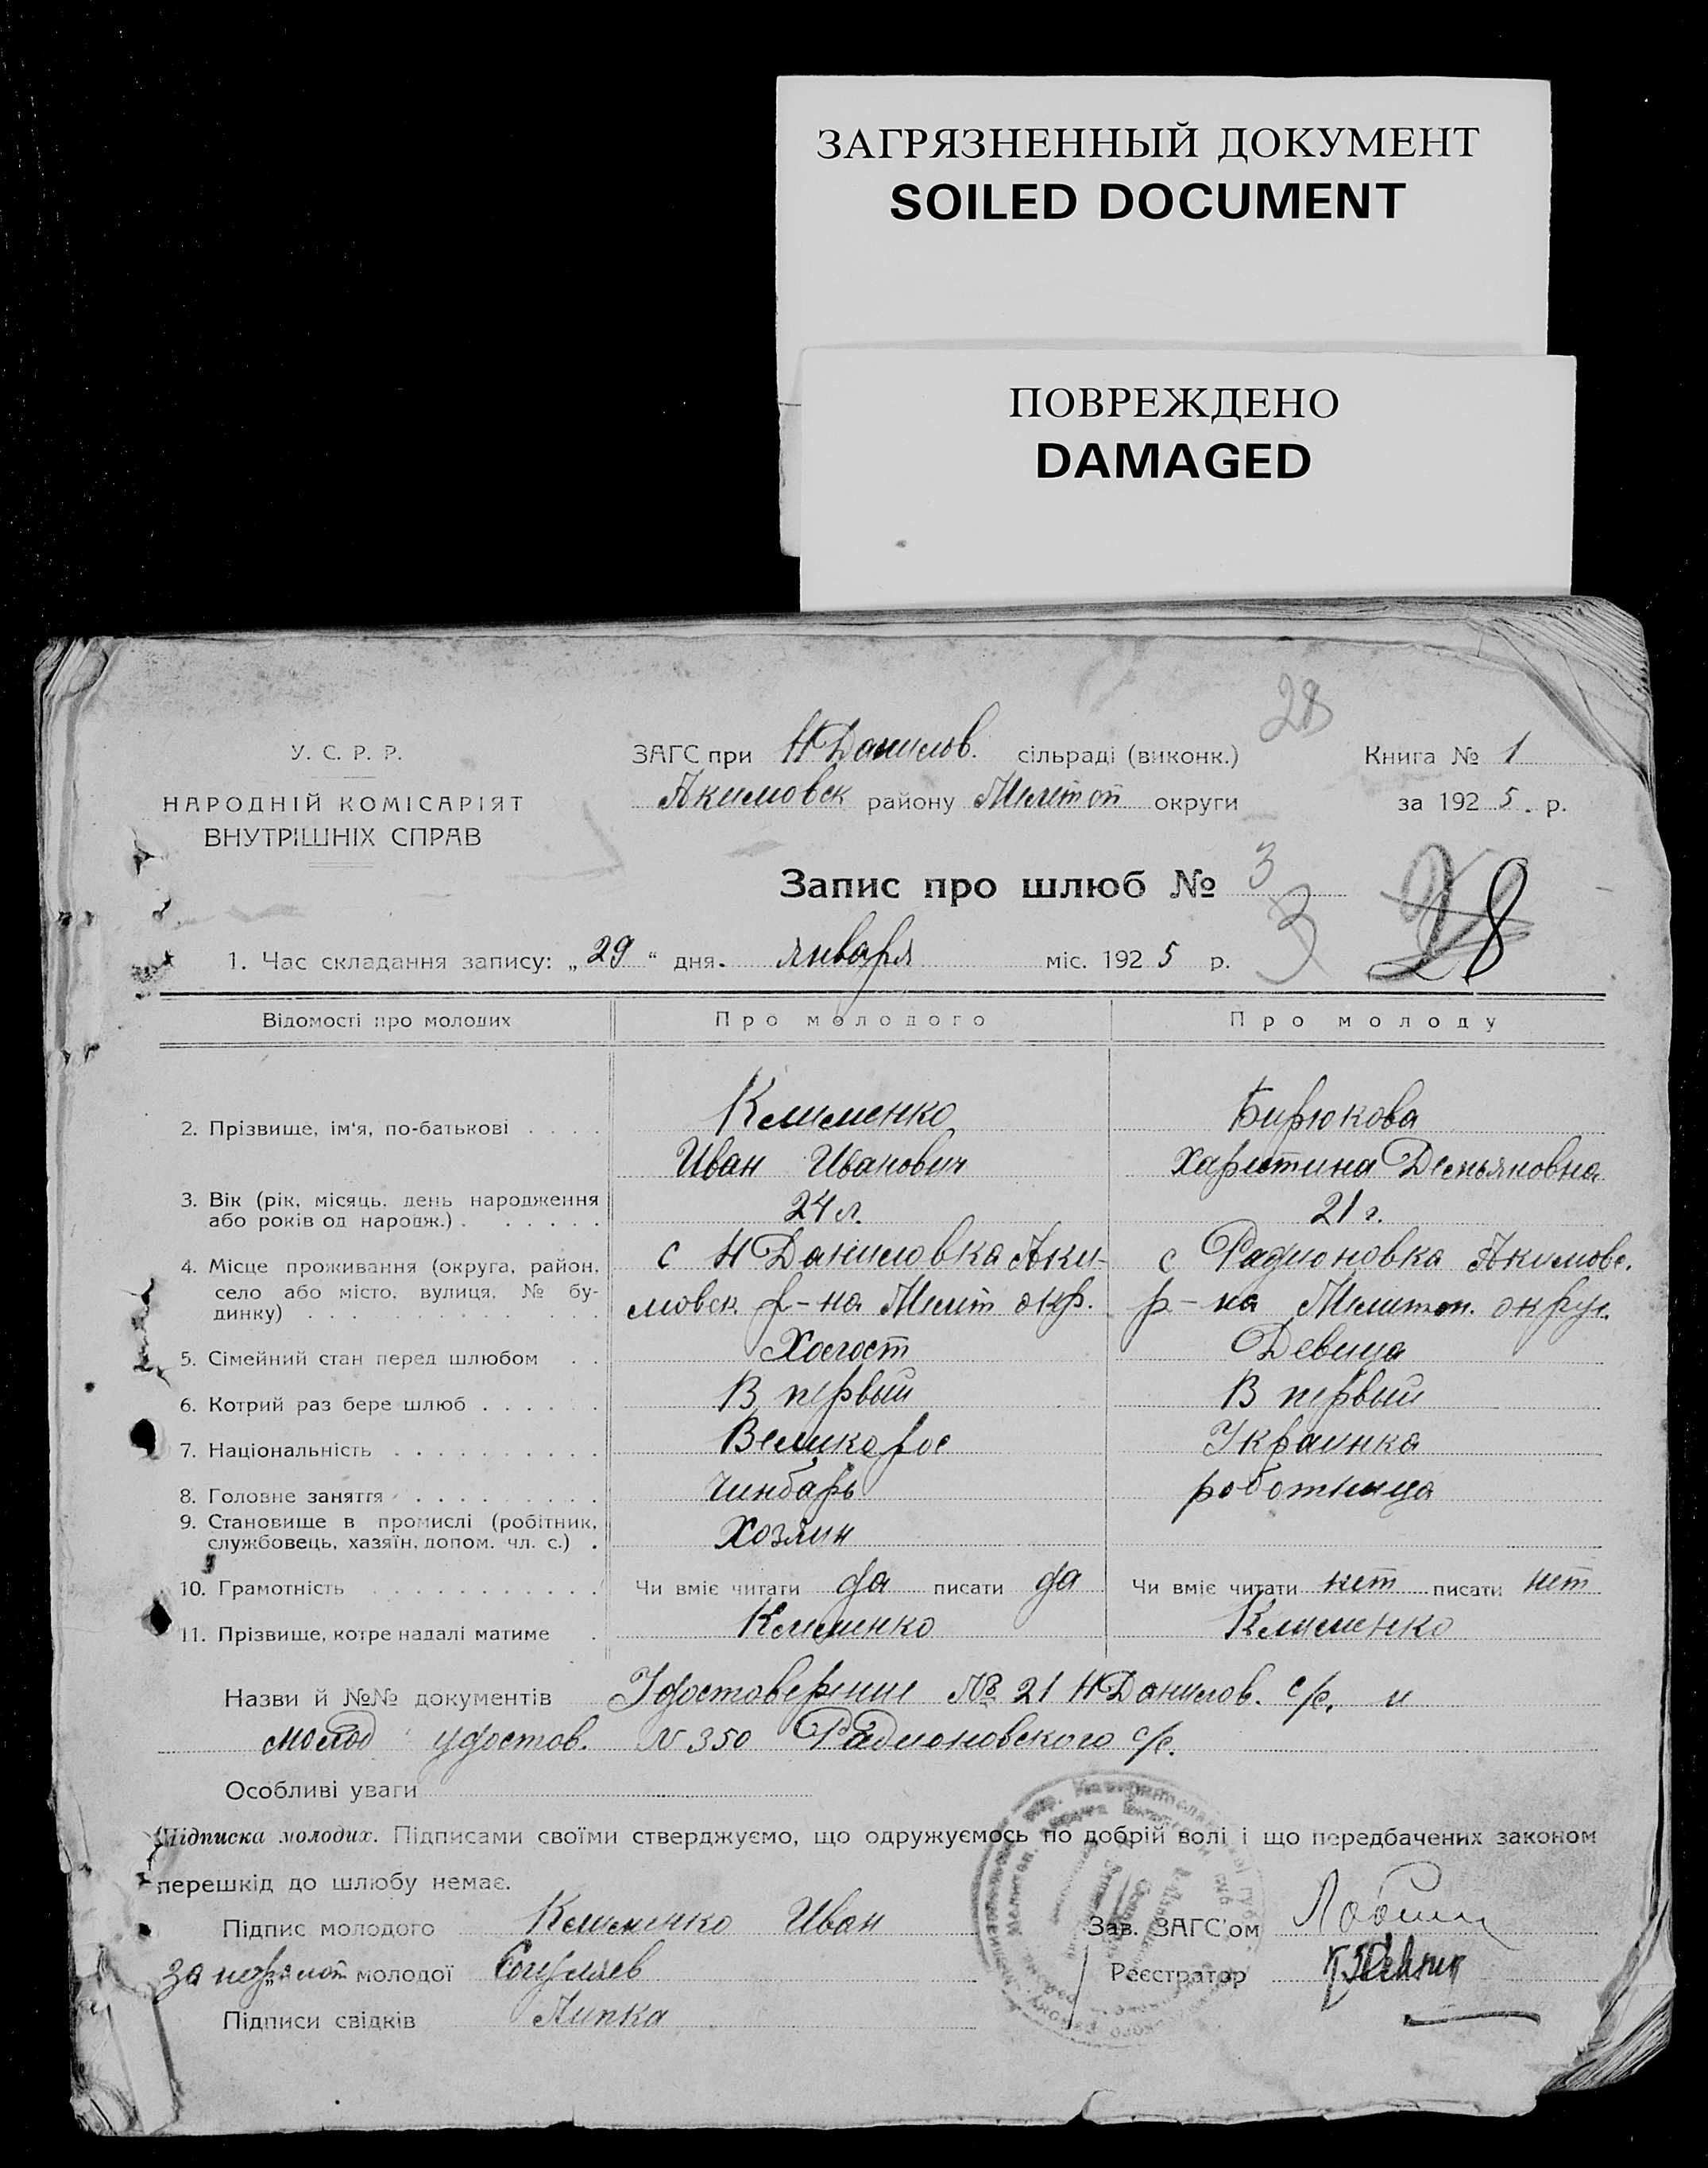 ЗАГРЯЗНЕННЫЙ ДОКУМЕНТ
SOILED DOCUMENT
ПОВРЕЖДЕНО
DAMAGED
28
У. С. Р. Р.
НАРОДНІЙ КОМІСАРІЯТ
ВНУТРІШНІХ СПРАВ
ЗАГС при Н Данилов. сільраді (виконк.)
Акимовск району Мелітоп округи
Книга № 1
за 1925. р.
Запис про шлюб № 3
3 28
1. Час складання запису: „29“ дня. января міс. 1925 р.
Відомості про молодих Про молодого Про молоду
2. Прізвище, ім'я, по-батькові . . . . Клименко Бирюкова
Иван Иванович Харитина Демьяновна
3. Вік (рік, місяць, день народження
або років од народж.) . . . . . . 24 л. 21 г.
4. Місце проживання (округа, район,
село або місто, вулиця, № бу-
динку) . . . . . . . . . .
с Н Даниловка Аки-
мовск р-на Мелит окр.
с Радионовка Акимовс.
р-на Мелитоп. округ.
5. Сімейний стан перед шлюбом . . Холост Девица
6. Котрий раз бере шлюб . . . . . . В первый В первый
7. Національність . . . . . . . . . Великорос Украинка
8. Головне заняття . . . . . . . . Чинбарь роботница
9. Становище в промислі (робітник,
службовець, хазяїн, допом. чл. с.) . Хозяин
10. Грамотність . . . . . . . . . . Чи вміє читати да писати да Чи вміє читати нет писати нет
11. Прізвище, котре надалі матиме . Клименко Клименко
Назви й №№ документів Удостоверение № 21 Н Данилов. с/с. и
молод удостов. N 350 Радионовского с/с.
Особливі уваги
Підписка молодих. Підписами своїми стверджуємо, що одружуємось по добрій волі і що передбачених законом
перешкід до шлюбу немає.
Підпис молодого Клименко Иван
Зав. ЗАГС'ом
за неграмот молодої
Реєстратор
Підписи свідків Липка